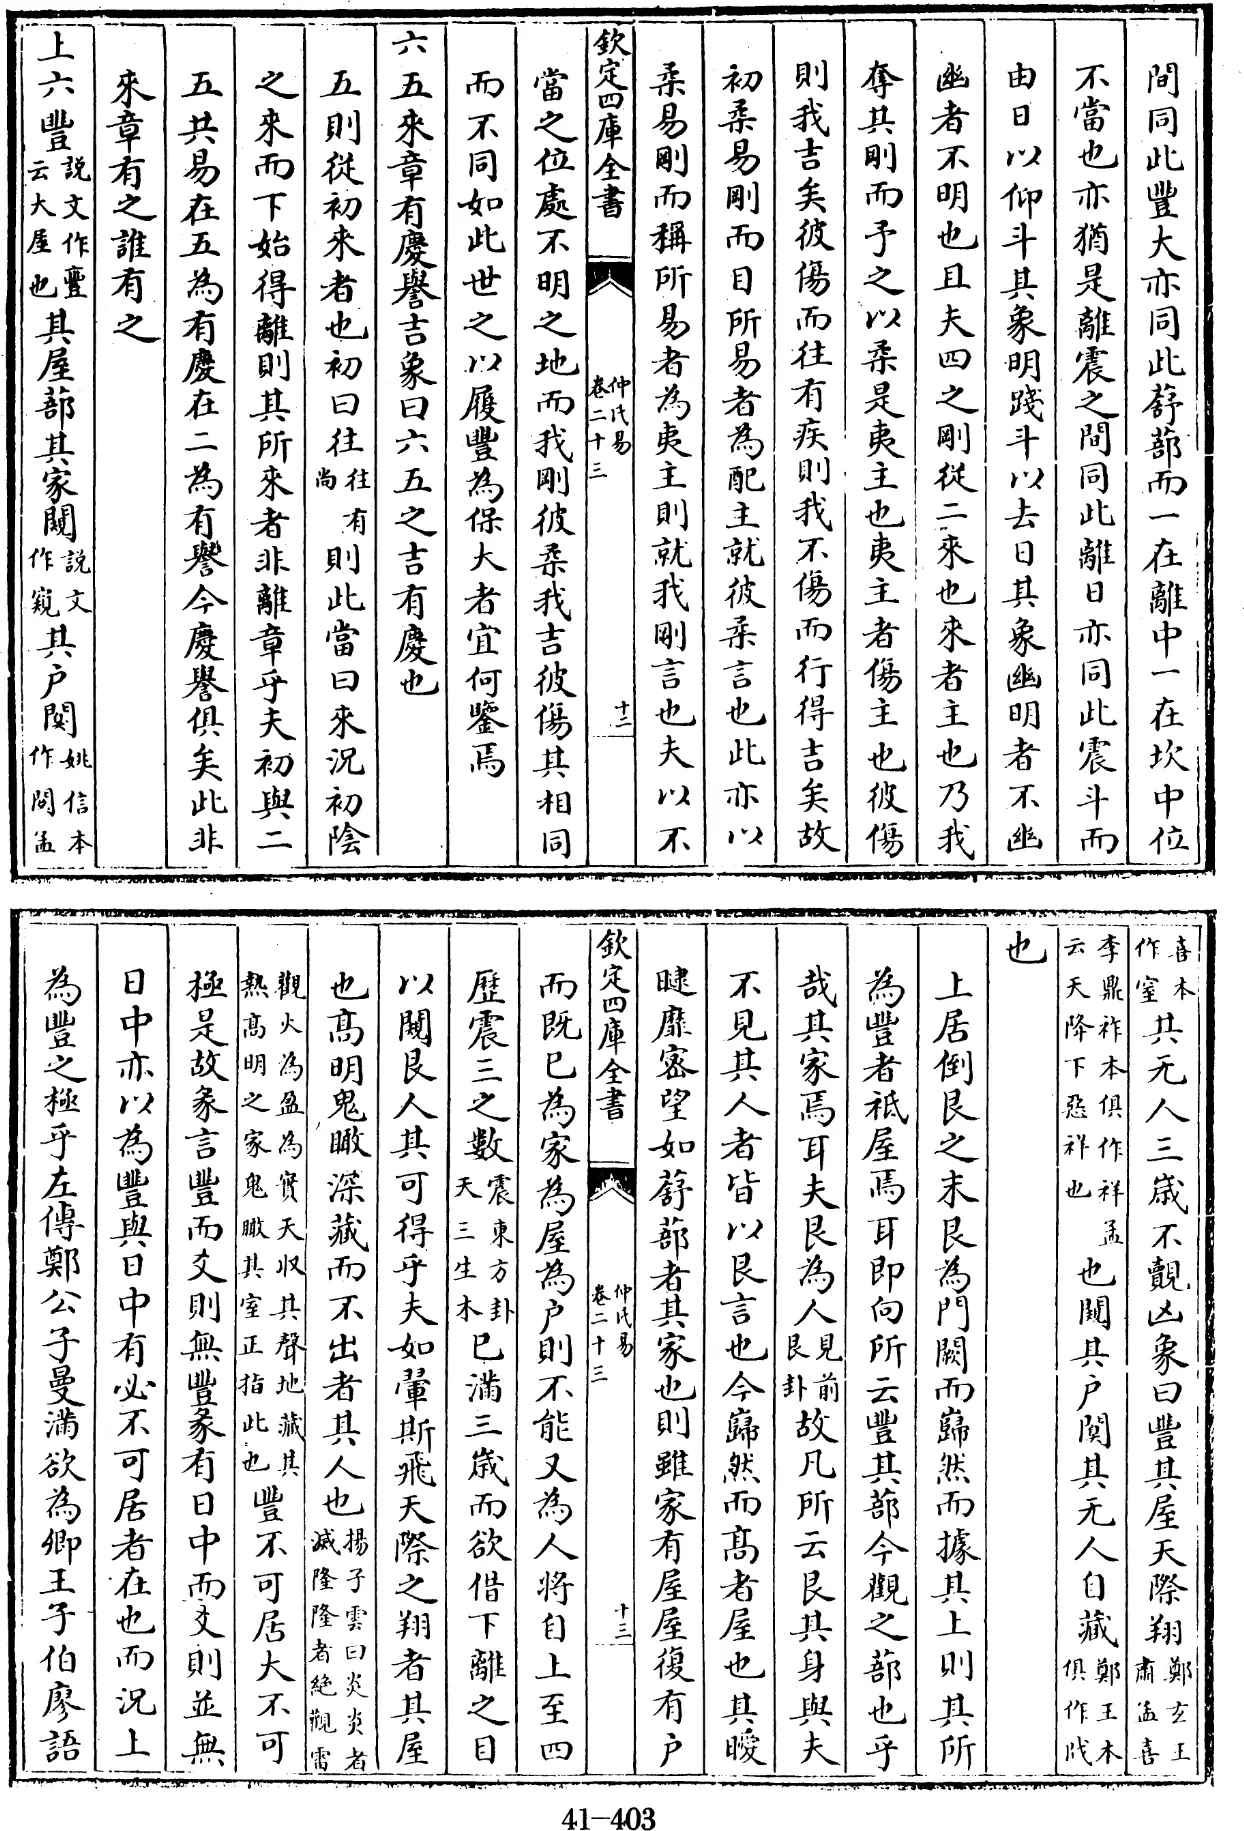 間同此豐大亦同此蔀蔀而一在離中一在坎中位
不當也亦猶是離震之間同此離日亦同此震斗而
由日以仰斗其象明踐斗以去日其象幽明者不幽
幽者不明也且夫四之剛從二來也來者主也乃我
奪其剛而予之以柔是夷主也夷主者傷主也彼傷
則我吉矣彼傷而往有疾則我不傷而行得吉矣故
初柔易剛而目所易者為配主就彼柔言也此亦以
柔易剛而稱所易者為夷主則就我剛言也夫以不
欽定四庫全書 仲氏易 卷二十三 十二
當之位處不明之地而我剛彼柔我吉彼傷其相同
而不同如此世之以履豐為保大者宜何鑒焉
六五來章有慶譽吉象曰六五之吉有慶也
五則從初來者也初曰往往有尚則此當曰來況初陰
之來而下始得離則其所來者非離章乎夫初與二
五共易在五為有慶在二為有譽今慶譽俱矣此非
來章有之誰有之
上六豐説文作寷云大屋也其屋蔀其家闚説文作窺其户闃姚信本作閴孟
喜本作窒其无人三歲不覿凶象曰豐其屋天際翔鄭玄王肅孟喜
李鼎祚本俱作祥孟云天降下惡祥也也闚其户闃其无人自藏鄭王本俱作戕
也
上居倒艮之末艮為門闕而巋然而據其上則其所
為豐者祗屋焉耳即向所云豐其蔀今觀之蔀也乎
哉其家焉耳夫艮為人見前艮卦故凡所云艮其身與夫
不見其人者皆以艮言也今巋然而髙者屋也其曖
曃靡密望如蔀蔀者其家也則雖家有屋屋復有户
欽定四庫全書 仲氏易 卷二十三 十三
而既已為家為屋為户則不能又為人將自上至四
歴震三之數震東方卦天三生木已滿三歲而欲借下離之目
以闚艮人其可得乎夫如翬斯飛天際之翔者其屋
也髙明鬼瞰深藏而不出者其人也揚子雲曰炎炎者滅隆隆者絶觀雷
觀火為盈為實天收其聲地藏其熱髙明之家鬼瞰其室正指此也豐不可居大不可
極是故彖言豐而爻則無豐彖有日中而爻則並無
日中亦以為豐與日中有必不可居者在也而況上
為豐之極乎左傳鄭公子曼滿欲為卿王子伯廖語
41-403